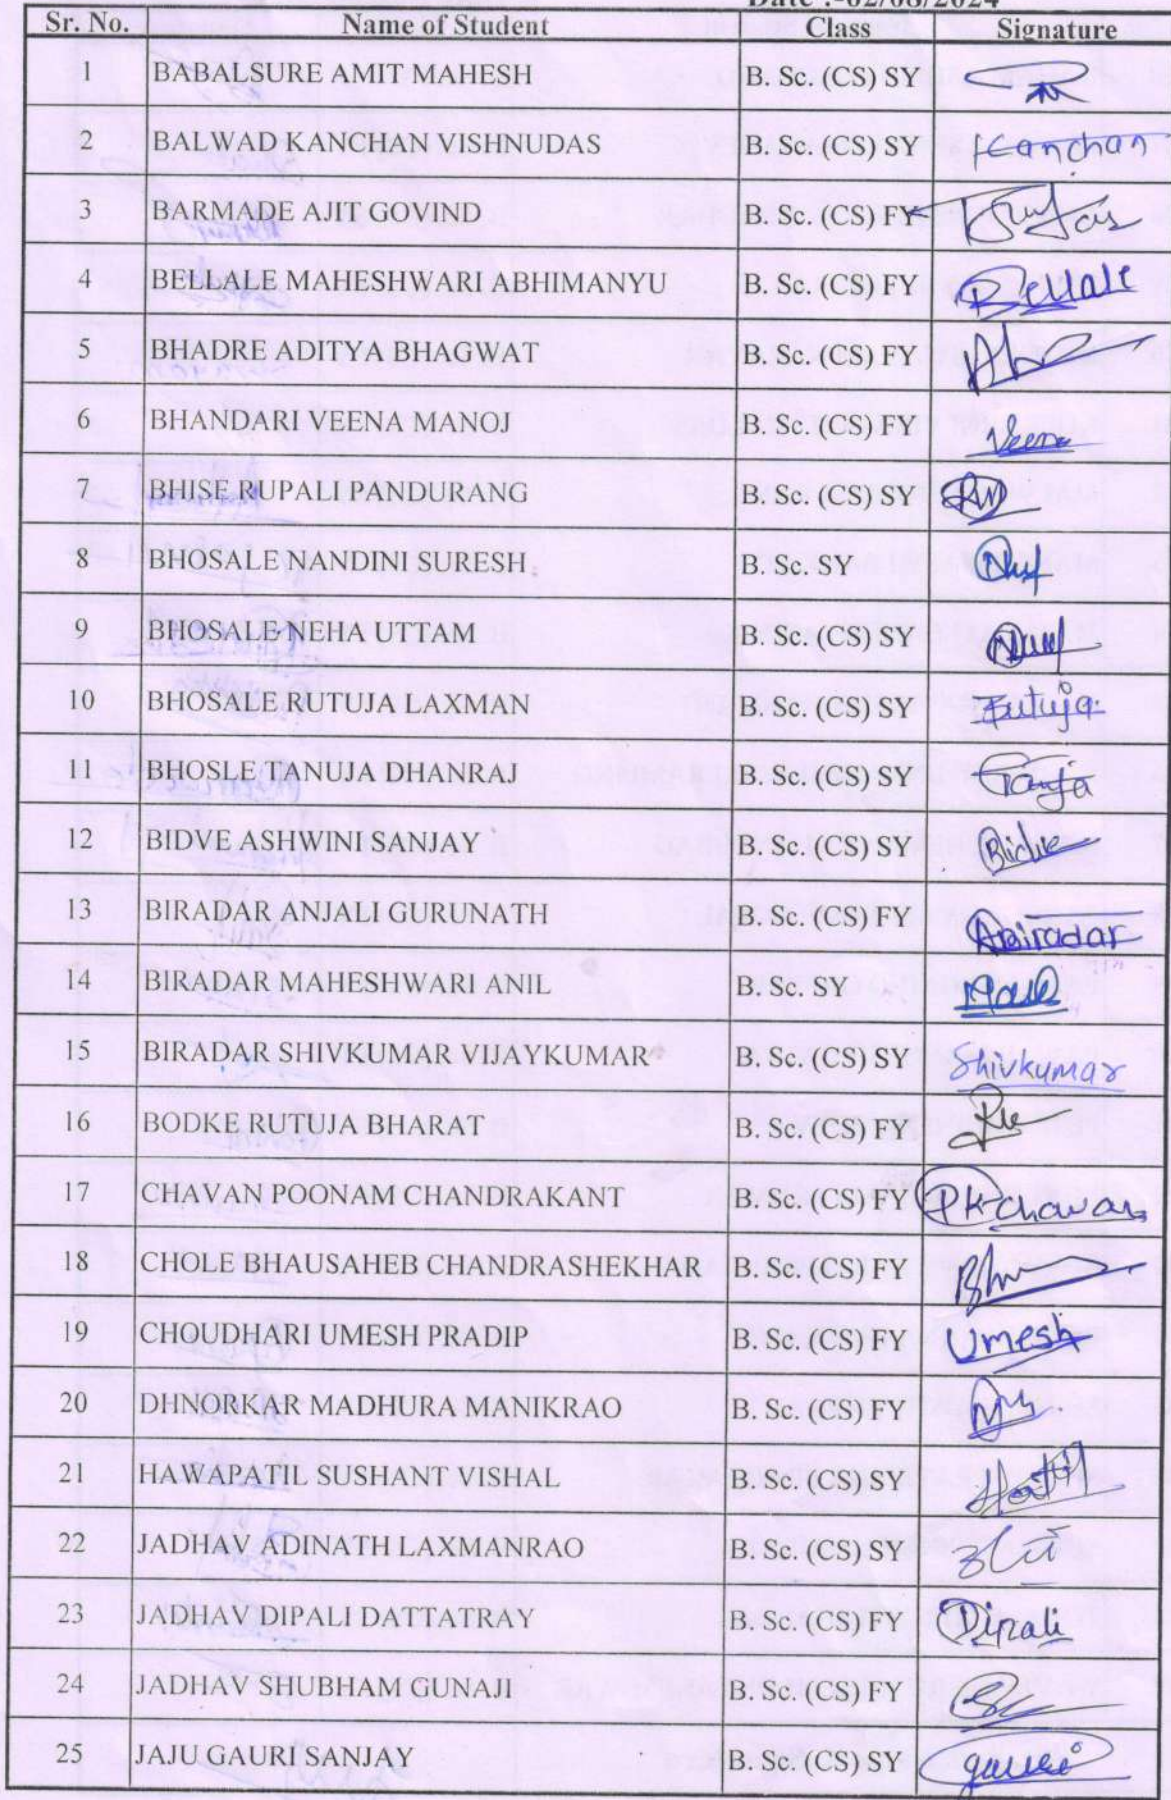 Date :-02/08/2024
Sr. No. Name of Student Class Signature
1 BABALSURE AMIT MAHESH B. Sc. (CS) SY
2 BALWAD KANCHAN VISHNUDAS B. Sc. (CS) SY Kanchan
3 BARMADE AJIT GOVIND B. Sc. (CS) FY
4 BELLALE MAHESHWARI ABHIMANYU B. Sc. (CS) FY Bellale
5 BHADRE ADITYA BHAGWAT B. Sc. (CS) FY
6 BHANDARI VEENA MANOJ B. Sc. (CS) FY Veena
7 BHISE RUPALI PANDURANG B. Sc. (CS) SY
8 BHOSALE NANDINI SURESH B. Sc. SY
9 BHOSALE NEHA UTTAM B. Sc. (CS) SY
10 BHOSALE RUTUJA LAXMAN B. Sc. (CS) SY Rutuja
11 BHOSLE TANUJA DHANRAJ B. Sc. (CS) SY Tanuja
12 BIDVE ASHWINI SANJAY B. Sc. (CS) SY Bidve
13 BIRADAR ANJALI GURUNATH B. Sc. (CS) FY Abiradar
14 BIRADAR MAHESHWARI ANIL B. Sc. SY
15 BIRADAR SHIVKUMAR VIJAYKUMAR B. Sc. (CS) SY Shivkumar
16 BODKE RUTUJA BHARAT B. Sc. (CS) FY
17 CHAVAN POONAM CHANDRAKANT B. Sc. (CS) FY PKchavan
18 CHOLE BHAUSAHEB CHANDRASHEKHAR B. Sc. (CS) FY
19 CHOUDHARI UMESH PRADIP B. Sc. (CS) FY Umesh
20 DHNORKAR MADHURA MANIKRAO B. Sc. (CS) FY
21 HAWAPATIL SUSHANT VISHAL B. Sc. (CS) SY
22 JADHAV ADINATH LAXMANRAO B. Sc. (CS) SY
23 JADHAV DIPALI DATTATRAY B. Sc. (CS) FY Dipali
24 JADHAV SHUBHAM GUNAJI B. Sc. (CS) FY
25 JAJU GAURI SANJAY B. Sc. (CS) SY gauri